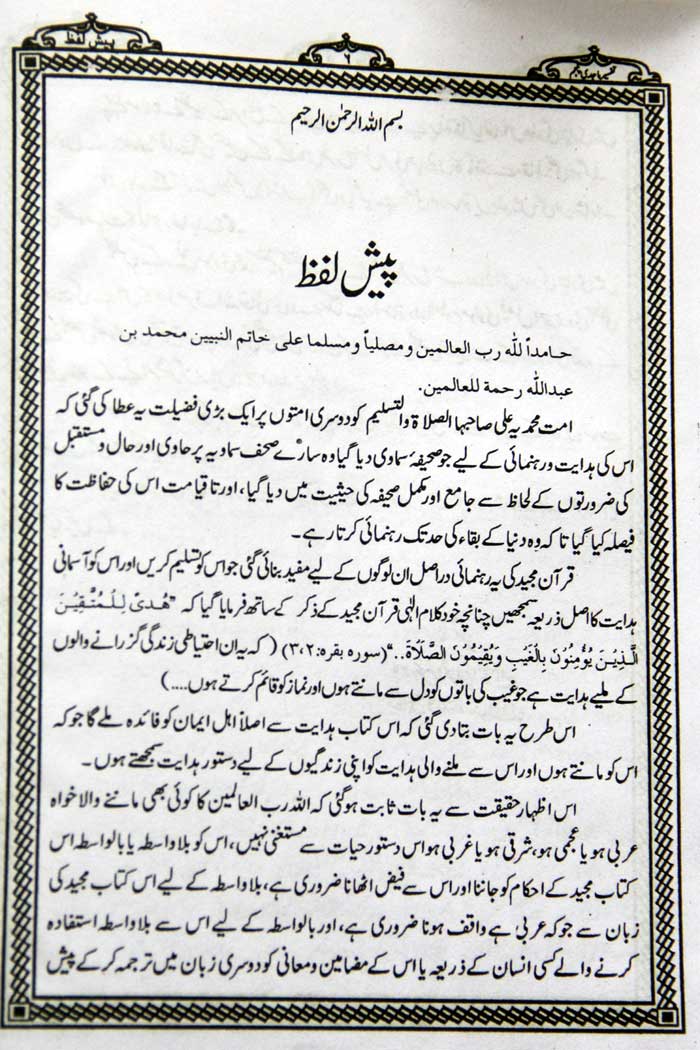 تفسیر ماجدی پنجم
۶
پیش لفظ
بسم اللہ الرحمٰن الرحیم
پیش لفظ
حامداً لله رب العالمين ومصلياً ومسلما على خاتم النبيين محمد بن
عبدالله رحمة للعالمين.
امت محمدیہ علی صاحبہا الصلاۃ والتسلیم کو دوسری امتوں پر ایک بڑی فضیلت یہ عطا کی گئی کہ
اس کی ہدایت ورہنمائی کے لیے جو صحیفۂ سماوی دیا گیا وہ سارے صحف سماویہ پر حاوی اور حال و مستقبل
کی ضرورتوں کے لحاظ سے جامع اور مکمل صحیفہ کی حیثیت میں دیا گیا، اور تا قیامت اس کی حفاظت کا
فیصلہ کیا گیا تا کہ وہ دنیا کے بقاء کی حد تک رہنمائی کرتا رہے۔
قرآن مجید کی یہ رہنمائی دراصل ان لوگوں کے لیے مفید بنائی گئی جو اس کو تسلیم کریں اور اس کو آسمانی
ہدایت کا اصل ذریعہ سمجھیں چنانچہ خود کلام الٰہی قرآن مجید کے ذکر کے ساتھ فرمایا گیا کہ ”هُدىً لِلْمُتَّقِيْنَ
الَّذِيْنَ يُؤْمِنُوْنَ بِالْغَيْبِ وَيُقِيْمُوْنَ الصَّلَاةَ..“ (سورہ بقرہ:۳،۲) ( کہ یہ ان احتیاطی زندگی گزرانے والوں
کے ملیے ہدایت ہے جو غیب کی باتوں کو دل سے مانتے ہوں اور نماز کو قائم کرتے ہوں....)
اس طرح یہ بات بتادی گئی کہ اس کتاب ہدایت سے اصلاً اہل ایمان کو فائدہ ملے گا جو کہ
اس کو مانتے ہوں اور اس سے ملنے والی ہدایت کو اپنی زندگیوں کے لیے دستور ہدایت سمجھتے ہوں۔
اس اظہار حقیقت سے یہ بات ثابت ہوگئی کہ اللہ رب العالمین کا کوئی بھی ماننے والا خواہ
عربی ہو یا عجمی ہو، شرقی ہو یا غربی ہو اس دستور حیات سے مستغنی نہیں، اس کو بلا واسطہ یا بالواسطہ اس
کتاب مجید کے احکام کو جاننا اور اس سے فیض اٹھانا ضروری ہے، بلا واسطہ کے لیے اس کتاب مجید کی
زبان سے جو کہ عربی ہے واقف ہونا ضروری ہے، اور بالواسطہ کے لیے اس سے بلا واسطہ استفادہ
کرنے والے کسی انسان کے ذریعہ یا اس کے مضامین ومعانی کو دوسری زبان میں ترجمہ کرکے پیش